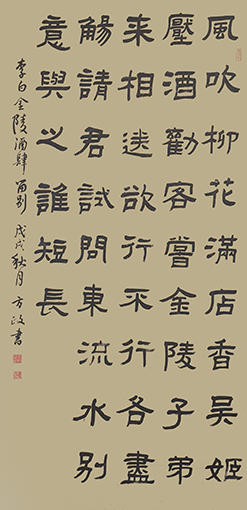 風吹柳花滿店香吳姬
壓酒勸客嘗金陵子弟
來相送欲行不行各盡
觴請君試問東流水別
意與之誰短長
李白金陵酒肆留別 戊戌秋月 方政書